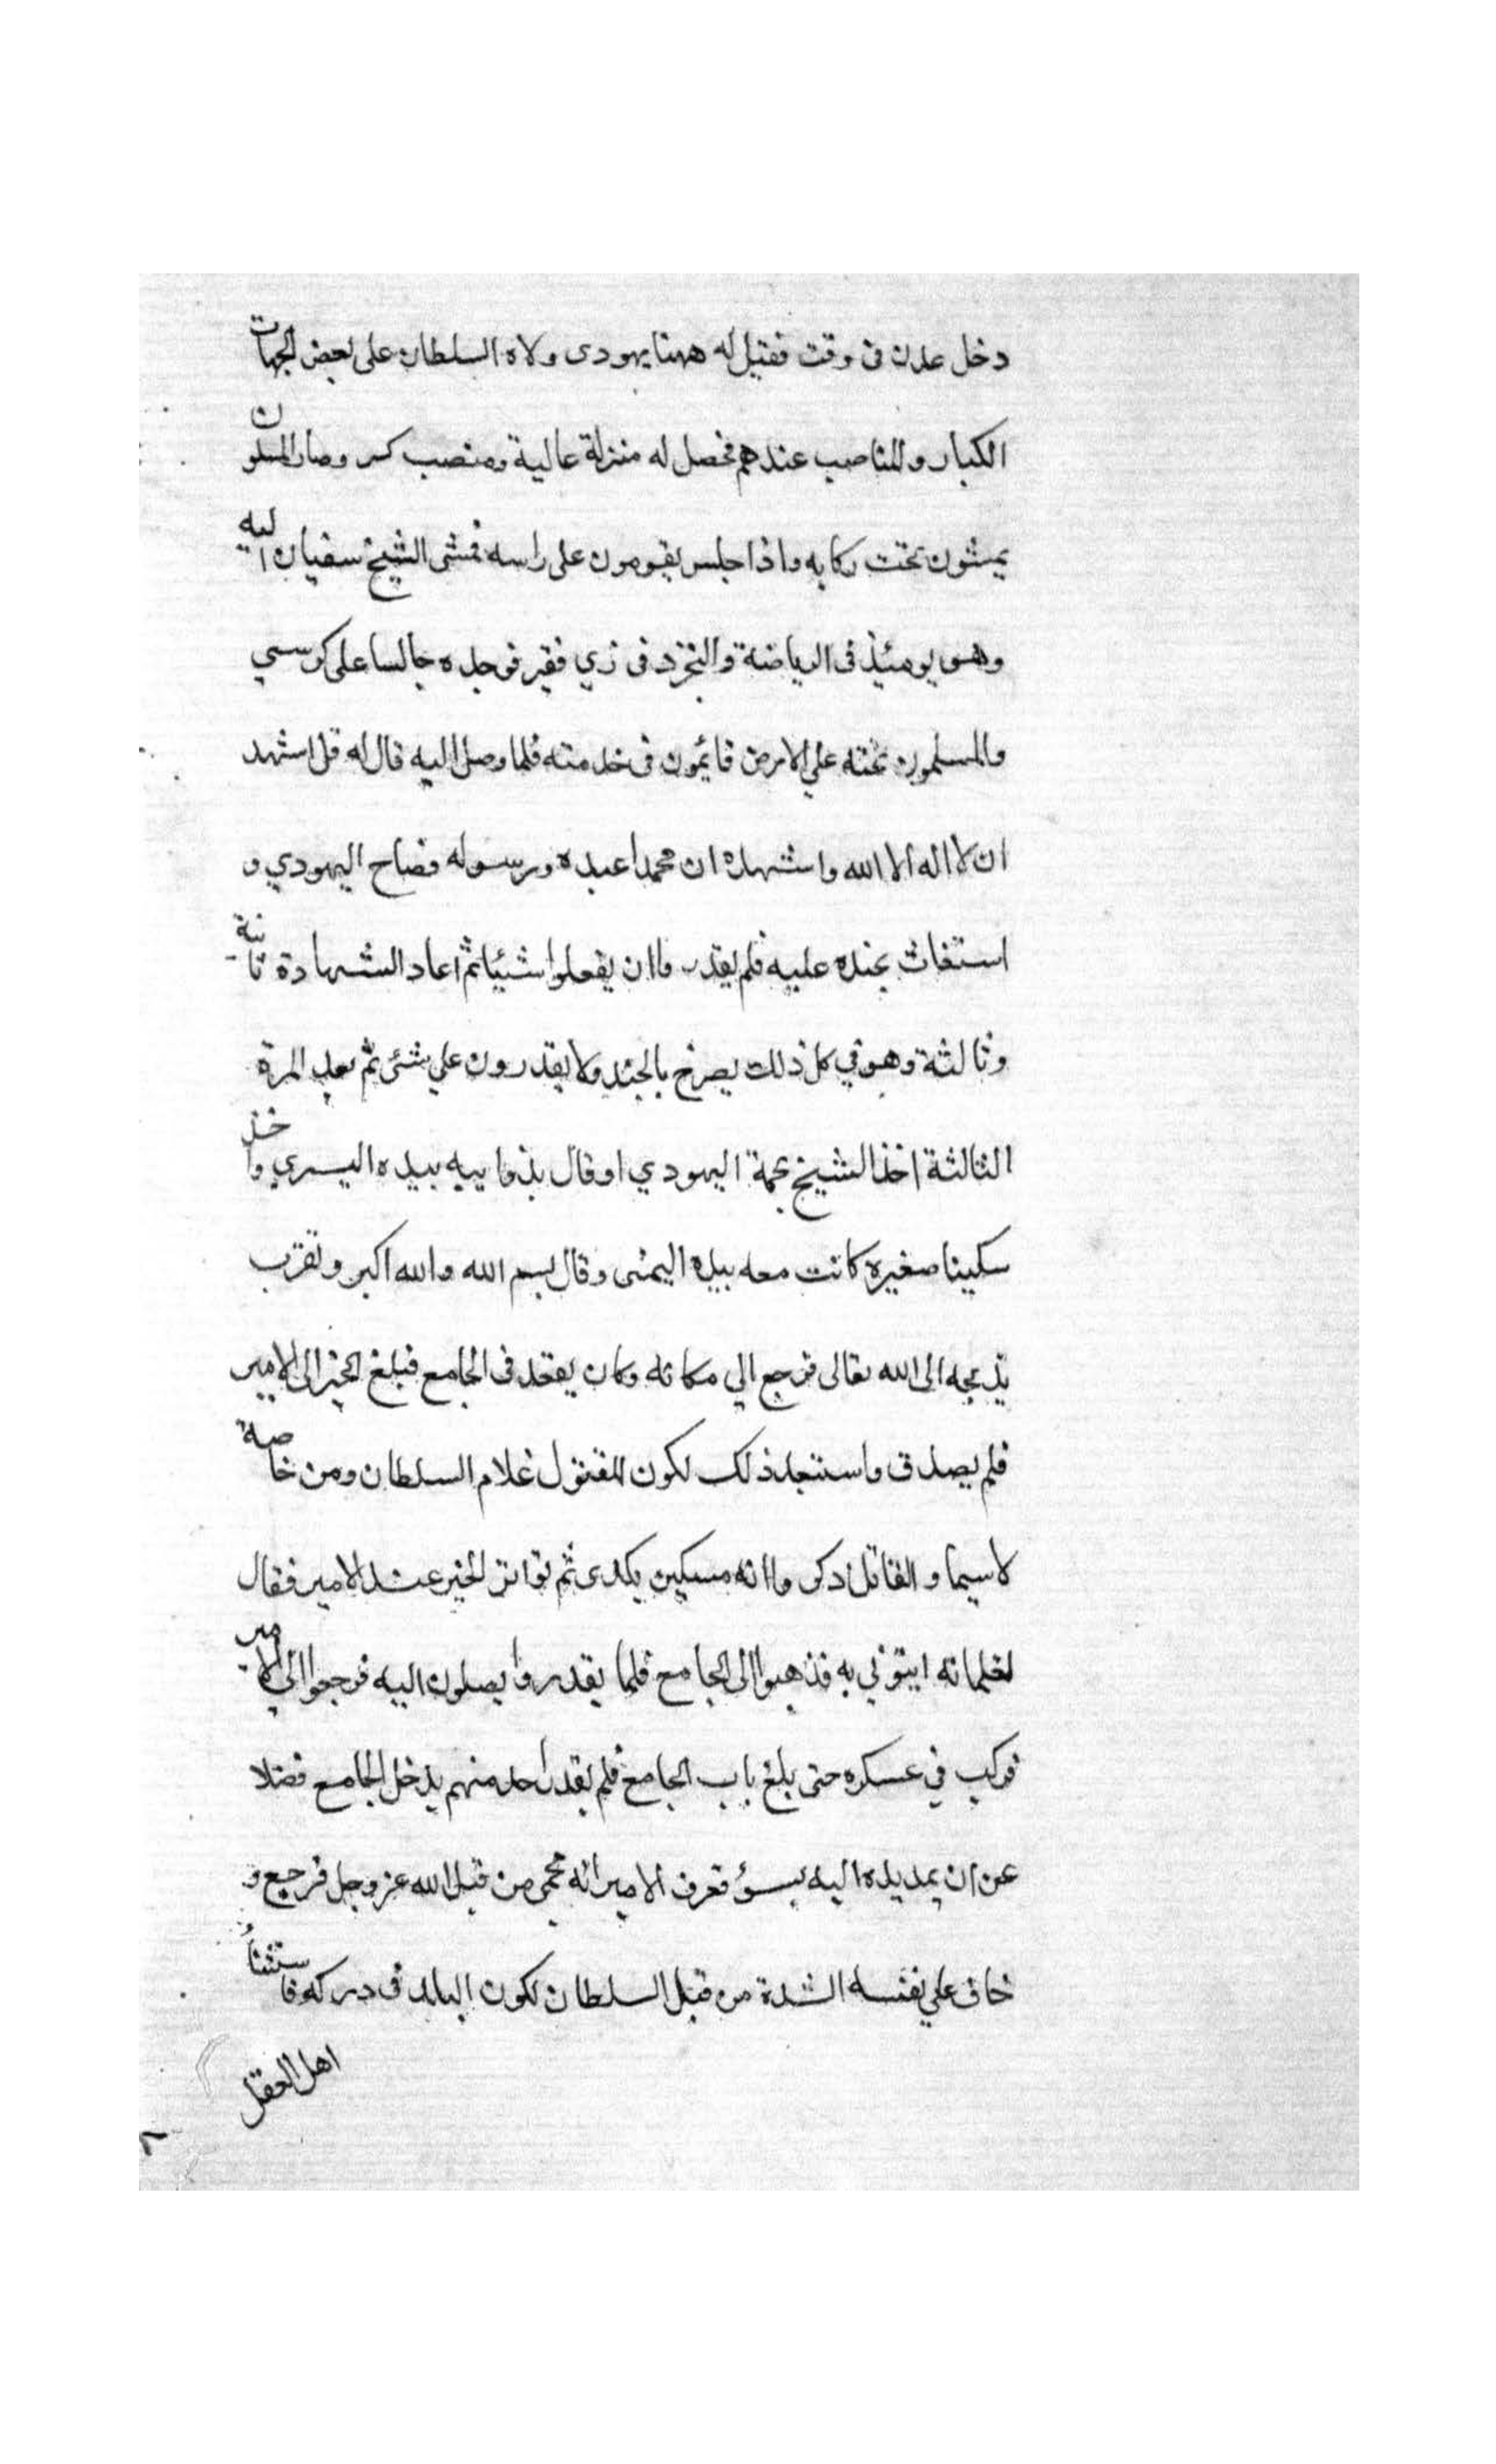 دخل عدن فى وقت فقيل له ههنا يهودى ولاه السلطان على بعض الجهات
الكبار والمناصب عندهم فحصل له منزلة عالية ومنصب كبير وصار المسلمون
يمشون تحت ركابه واذا جلس يقومون على راسه فمشى الشيخ سفيان اليه
وهو يومئذ فى الرياضة والتجرد فى زي فقير فوجده جالسا على كرسي
والمسلمون تحته علي الارض قائمون فى خدمته فلما وصل اليه قال له قل اشهد
ان لا اله الا الله واشهد ان محمدا عبده ورسوله فصاح اليهودي و
استغاث بجنده عليه فلم يقدروا ان يفعلوا شيئا ثم اعاد الشهادة ثانية
وثالثة وهو في كل ذلك يصرخ بالجند ولا يقدرون علي شئ ثم بعد المرة
الثالثة اخذ الشيخ بجمة اليهودي او قال بذوايبه بيده اليسري واخذ
سكينا صغيرة كانت معه بيده اليمنى وقال بسم الله والله اكبر وتقرب
بذبحه الى الله تعالى فرجع الي مكانه وكان يقعد فى الجامع فبلغ الخبر الى الامير
فلم يصدق واستبعد ذلك لكون المقتول غلام السلطان ومن خاصة
لاسيما و القاتل ذكروا انه مسكين يكدى ثم تواتر الخبر عند الامير فقال
لغلمانه ايتوني به فذهبوا الى الجامع فلما يقدروا يصلون اليه فرجعوا الى الامير
فركب في عسكره حتى بلغ باب الجامع فلم يقدر احد منهم يدخل الجامع فضلا
عن ان يمد يده اليه بسوٴ فعرف الامير انه محمى من قبل الله عز وجل فرجع و
خاف علي نفسه الشدة من قبل السلطان لكون البلد فى دركه فاستثنا
اهل العقل